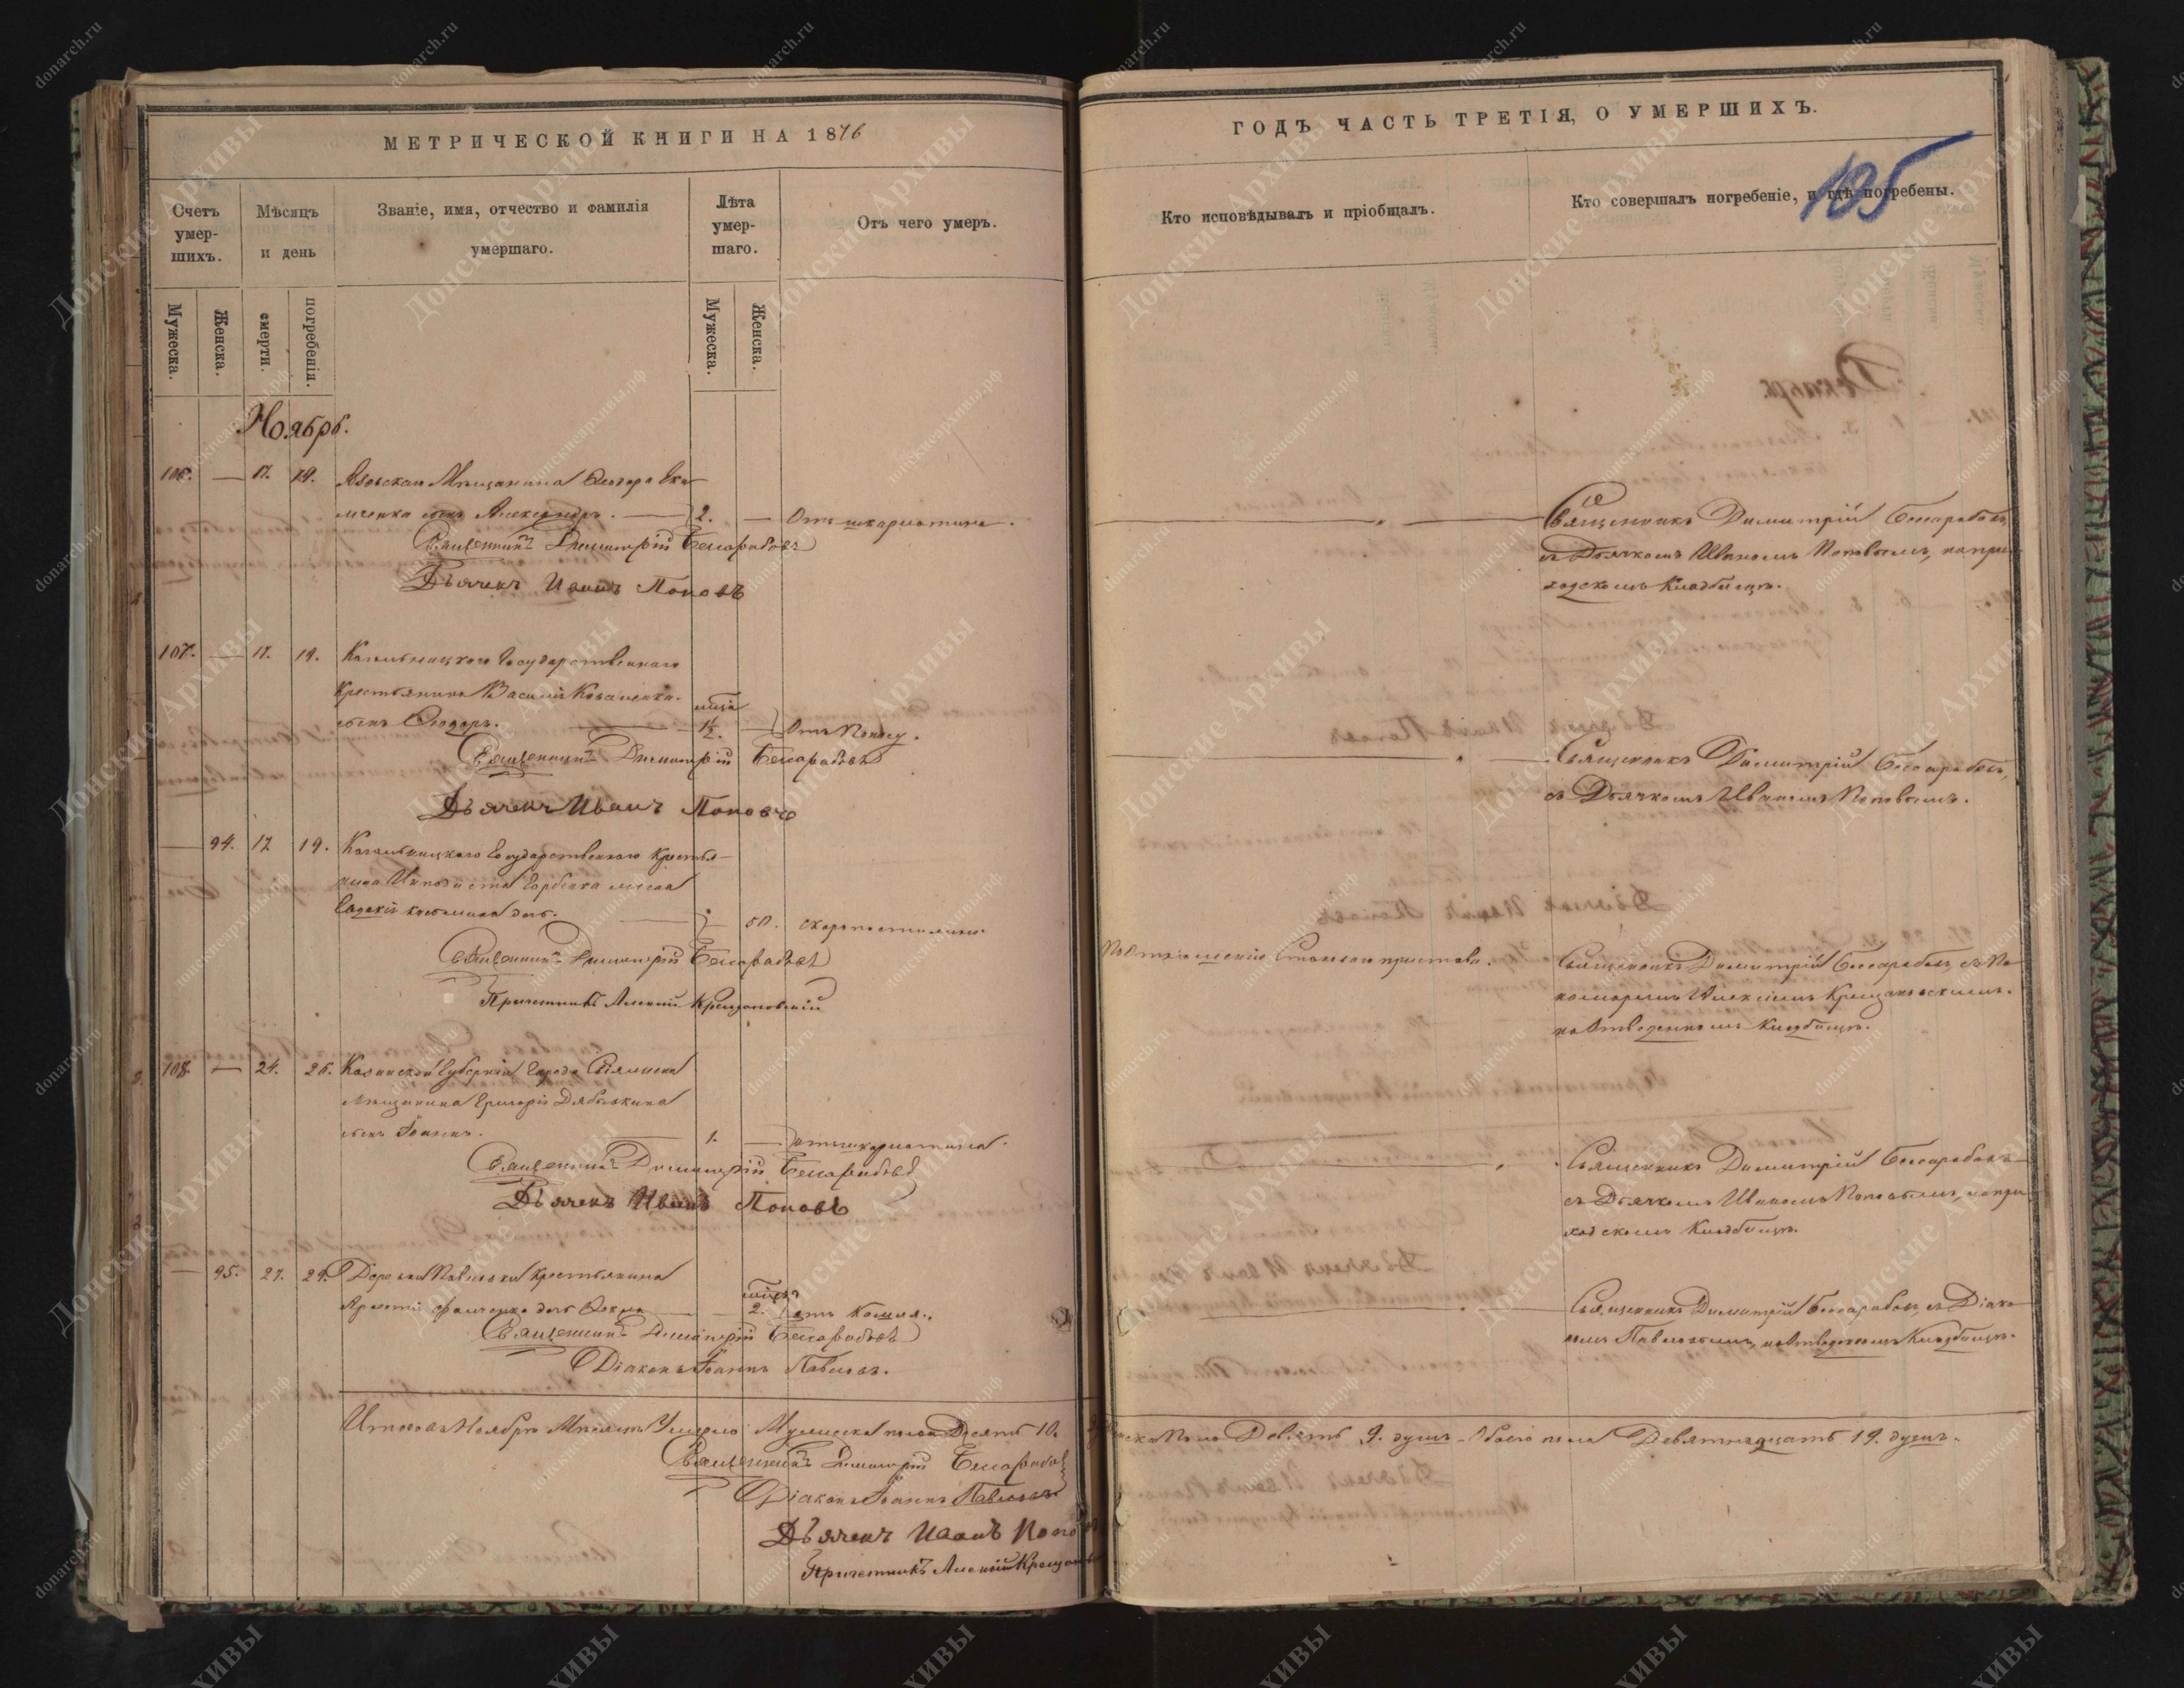 МЕТРИЧЕСКОЙ КНИГИ НА 1876
ГОДЪ ЧАСТЬ ТРЕТІЯ, О УМЕРШИХЪ.
105
Счетъ умер-шихъ.
Мѣсяцъ и день
Званіе, имя, отчество и фамилія умершаго.
Лѣта умер-шаго.
Отъ чего умеръ.
Кто исповѣдывалъ и пріобщалъ.
Кто совершалъ погребеніе, и гдѣ погребены.
Мужеска.
Женска.
смерти.
погребенія.
Мужеска.
Женска.
Ноябрь.
106. — 17. 19. Азовскаго Мѣщанина Ѳеодора
сынъ Александръ. — 2. — Отъ шкарлатины.
Священникъ Димитрій Бессарабовъ
Дьячекъ Иванъ Поповъ
Священникъ Димитрій Бессарабовъ,
съ Дьячкомъ Иваномъ Поповымъ, на при-
ходскомъ Кладбищѣ.
107. — 17. 19. Кагальницкаго Государственнаго
Крестьянина Василія Коваленка
сынъ Ѳеодоръ. — 1½. — Отъ Поносу.
Священникъ Димитрій Бессарабовъ
Дьячекъ Иванъ Поповъ
Священникъ Димитрій Бессарабовъ,
съ Дьячкомъ Иваномъ Поповымъ.
— 94. 17. 19. Кагальницкаго Государственнаго Крестья-
нина
дочь. — 50. скоропостижно.
Священникъ Димитрій Бессарабовъ
Причетникъ Алексій Крещановскій
Становаго пристава.
Священникъ Димитрій Бессарабовъ, съ По-
номаремъ Алексіемъ Крещановскимъ.
на Отведенномъ Кладбищѣ.
108. — 24. 26. Казанской Губерніи Города Свіяжска
Мѣщанина Григорія
сынъ Іоаннъ. — 1. — отъ шкарлатины.
Священникъ Димитрій Бессарабовъ
Дьячекъ Иванъ Поповъ
Священникъ Димитрій Бессарабовъ
съ Дьячкомъ Иваномъ Поповымъ, на при-
ходскомъ Кладбищѣ.
— 95. 27. 29. Деревни Крестьянина
дочь — 2. отъ Кашля.
Священникъ Димитрій Бессарабовъ
Діаконъ Іоаннъ Павловъ.
Священникъ Димитрій Бессарабовъ, съ Діако-
номъ Павловымъ, на Отведенномъ Кладбищѣ.
Итого въ Ноябрѣ Мѣсяцѣ Умерло Мужеска пола Десять 10. Женска Пола Девять 9. душъ Обоего пола Девятнадцать 19. душъ.
Священникъ Димитрій Бессарабовъ
Діаконъ Іоаннъ Павловъ
Дьячекъ Иванъ Поповъ
Причетникъ Алексій